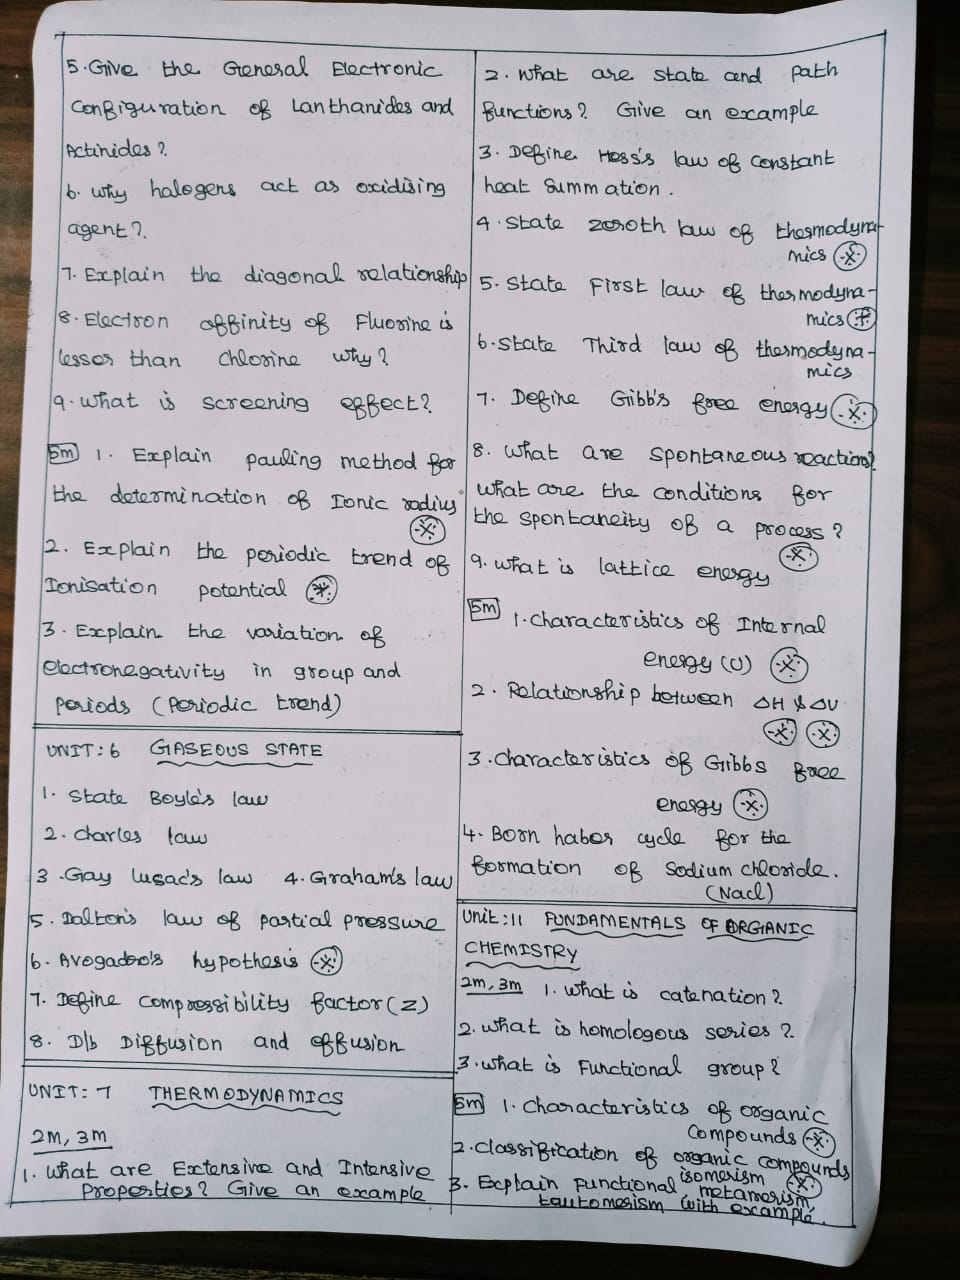 5. Give the General Electronic
Configuration of Lanthanides and
Actinides?
6. why halogens act as oxidising
agent?
7. Explain the diagonal relationship
8. Electron affinity of Fluorine is
lesser than chlorine why?
9. what is screening effect?
5m 1. Explain pauling method for
the determination of Ionic radius
2. Explain the periodic trend of
Ionisation potential
3. Explain the variation of
electronegativity in group and
periods (Periodic trend)
UNIT: 6 GASEOUS STATE
1. State Boyle's law
2. Charles law
3. Gay lusac's law 4. Graham's law
5. Dalton's law of partial pressure
6. Avogadro's hypothesis
7. Define compressibility factor (Z)
8. D/b Diffusion and effusion
UNIT: 7 THERMODYNAMICS
2m, 3m
1. what are Extensive and Intensive
Properties? Give an example
2. what are state and path
functions? Give an example
3. Define Hess's law of constant
heat summation.
4. State zeroth law of thermodyna-
mics
5. State First law of thermodyna-
mics
6. State Third law of thermodyna-
mics
7. Define Gibb's free energy
8. what are spontaneous reaction?
what are the conditions for
the spontaneity of a process?
9. what is lattice energy
5m
1. characteristics of Internal
energy (U)
2. Relationship between ΔH & ΔU
3. characteristics of Gibbs free
energy
4. Born haber cycle for the
formation of Sodium chloride.
(Nacl)
Unit: 11 FUNDAMENTALS OF ORGIANIC
CHEMISTRY
2m, 3m 1. what is catenation?
2. what is homologous series?
3. what is Functional group?
5m 1. Characteristics of organic
Compounds
2. Classification of organic compounds
3. Explain functional isomerism metamerism
tautomerism with example.